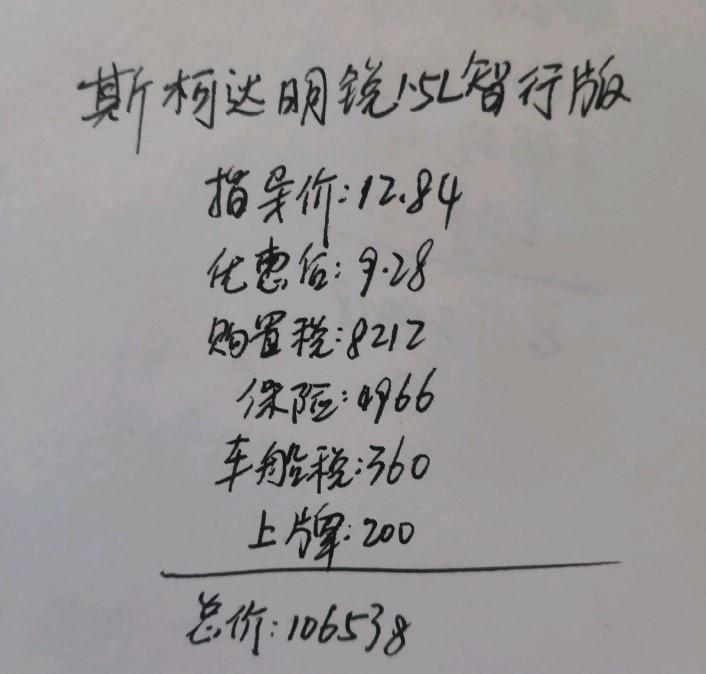 斯柯达明锐1.5L智行版
指导价:12.84
优惠后:9.28
购置税:8212
保险:4966
车船税:360
上牌:200
总价:106538